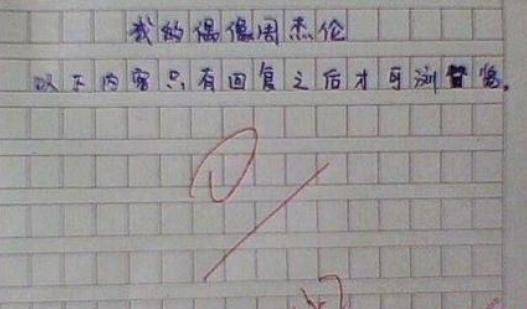 我的偶像周杰伦
以下内容只有回复之后才可浏览。